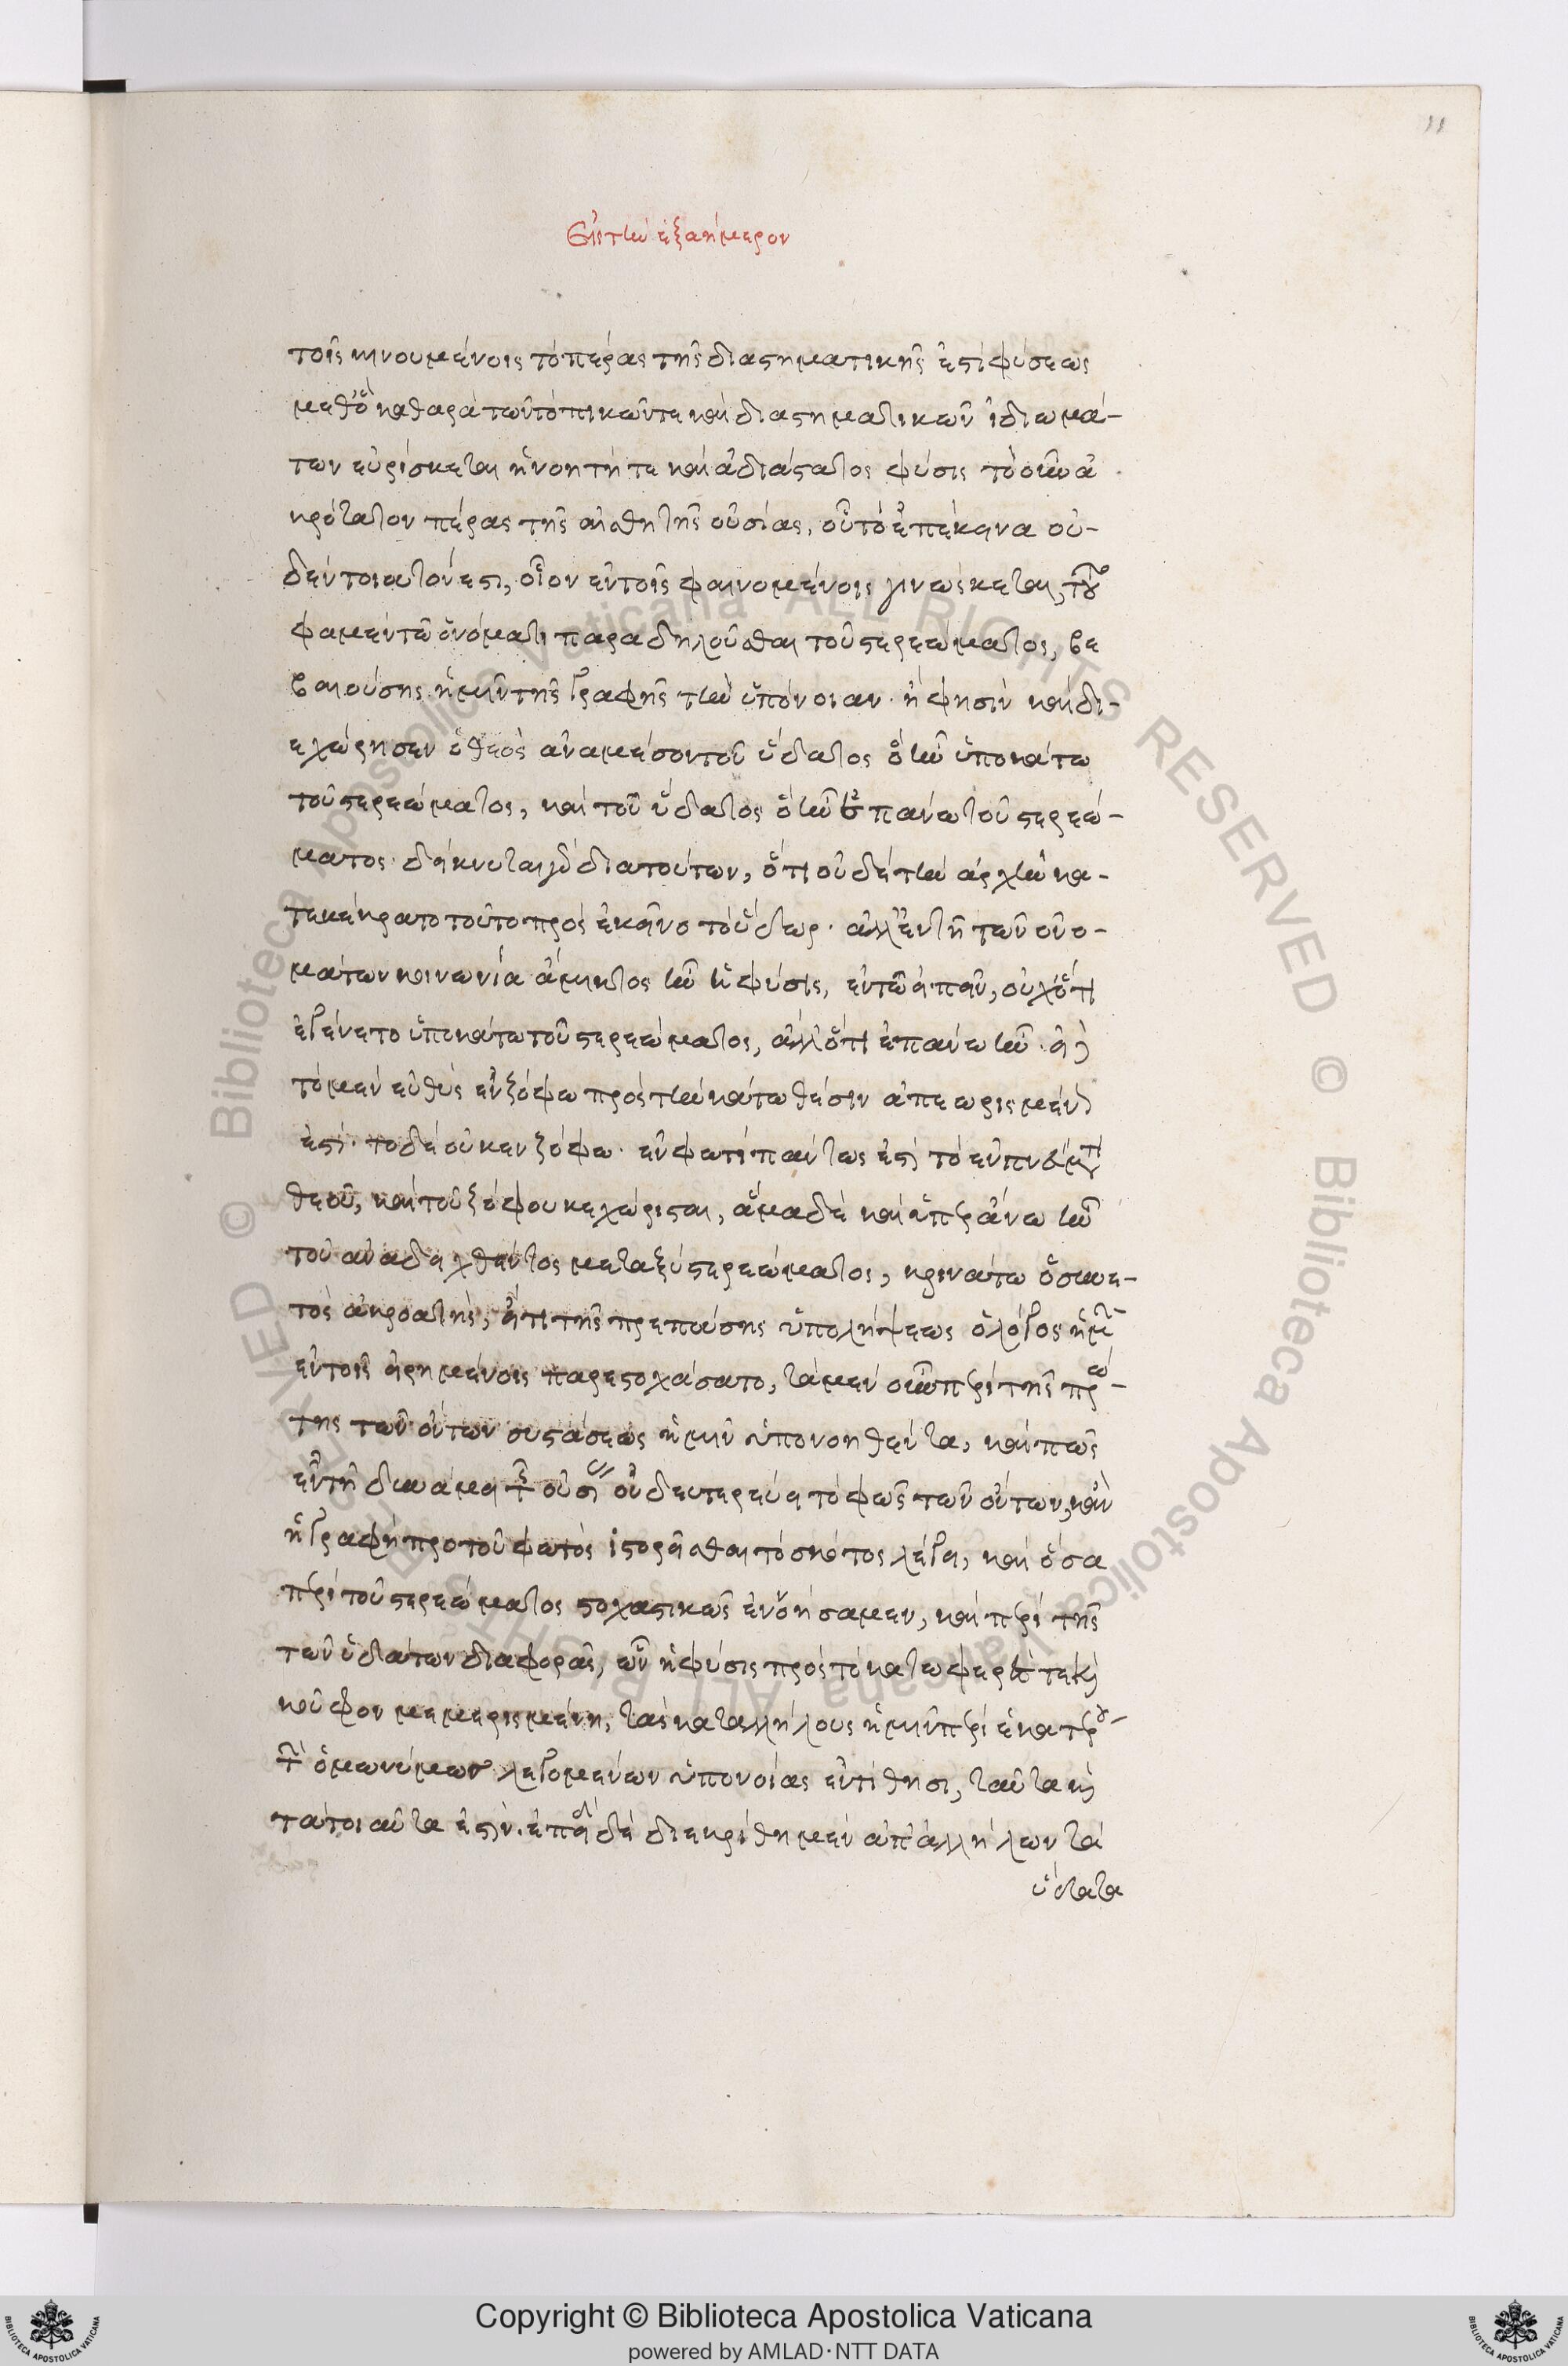 11
Εἰς τὴν ἑξαήμερον
τοῖς κινουμένοις τὸ πέρας τῆς διαστηματικῆς ἐστὶ φύσεως
μεθ' ὃ καθαρὰ τῶν τοπικῶν τε καὶ διαστηματικῶν ἰδιωμά-
των εὑρίσκεται ἡ νοητή τε καὶ ἀδιάστατος φύσις τὸ οὖν ἀ
κρότατον πέρας τῆς αἰσθητῆς οὐσίας, οὗ τὸ ἐπέκεινα οὐ-
δὲν τοιοῦτον ἐστι, οἷον ἐν τοῖς φαινομένοις γινώσκεται, τοῦτο
φαμὲν τῷ ὀνόματι παραδηλοῦσθαι τοῦ στερεώματος, βε
βαιούσης ἡμῖν τῆς γραφῆς τὴν ὑπόνοιαν. ἥ φησὶν καὶ δι-
εχώρησεν ὁ θεὸς ἀναμέσον τοῦ ὕδατος ὃ ἦν ὑποκάτω
τοῦ στερεώματος, καὶ τοῦ ὕδατος ὃ ἦν ἐπάνω τοῦ στερεώ-
ματος. δείκνυται γὰρ διὰ τούτων, ὅτι οὐδὲ τὴν ἀρχὴν κα-
τεκέκρατο τοῦτο πρὸς ἐκεῖνο τὸ ὕδωρ. ἀλλ' ἐν τῇ τῶν ὀνο-
μάτων κοινωνία ἄμικτος ἦν ἡ φύσις, ἐν τῷ εἰπεῖν, οὐχ ὅτι
ἐγένετο ὑποκάτω τοῦ στερεώματος, ἀλλ' ὅτι ἐπάνω ἦν. εἰ δὲ
τὸ μὲν εὐθὺς ἐν ζόφω πρὸς τὴν κάτω θέσιν ἀπεωρισμένον
ἐστί. τὸ δὲ οὐκ ἐν ζόφω. ἐν φωτὶ πάντως ἐστὶ τὸ ἐν πνεύματι
θεοῦ, καὶ τοῦ ζόφου κεχώρισται, ἅμα δὲ καὶ ὑπεράνω ἦν
τοῦ ἀναδειχθέντος μεταξὺ στερεώματος, κρινάτω ὁ συνε-
τὸς ἀκροατὴς, εἴτι τῆς πρεπούσης ὑπολήψεως ὁ λόγος ἡμῖν
ἐν τοῖς εἰρημένοις παρεστοχάσατο, τὰ μὲν οὖν περὶ τῆς πρώ-
της τῶν ὄντων συστάσεως ἡμῖν ὑπονοηθέντα, καὶ πῶς
ἐν τῇ δυνάμει τῆς οὐσίας οὐ δευτερεύει τὸ φῶς τῶν ὄντων, κἂν
ἡ γραφὴ πρὸ τοῦ φωτὸς ἱστορεῖσθαι τὸ σκότος λέγει, καὶ ὅσα
περὶ τοῦ στερεώματος στοχαστικῶς ἐνοήσαμεν, καὶ περὶ τῆς
τῶν ὑδάτων διαφορᾶς, ὧν ἡ φύσις πρὸς τὸ κατωφερές τε καὶ
κοῦφον μεμερισμένη, τὰς καταλλήλους ἡμῖν περὶ ἑκατέρου
τῶν ὁμωνύμων λεγομένων ὑπονοίας ἐντίθησι, ταῦτα καὶ
τὰ τοιαῦτα ἐστίν. ἐπειδὴ δὲ διεκρίθη μὲν ἀπ' ἀλλήλων τὰ
ὕδατα
Copyright © Biblioteca Apostolica Vaticana
powered by AMLAD·NTT DATA